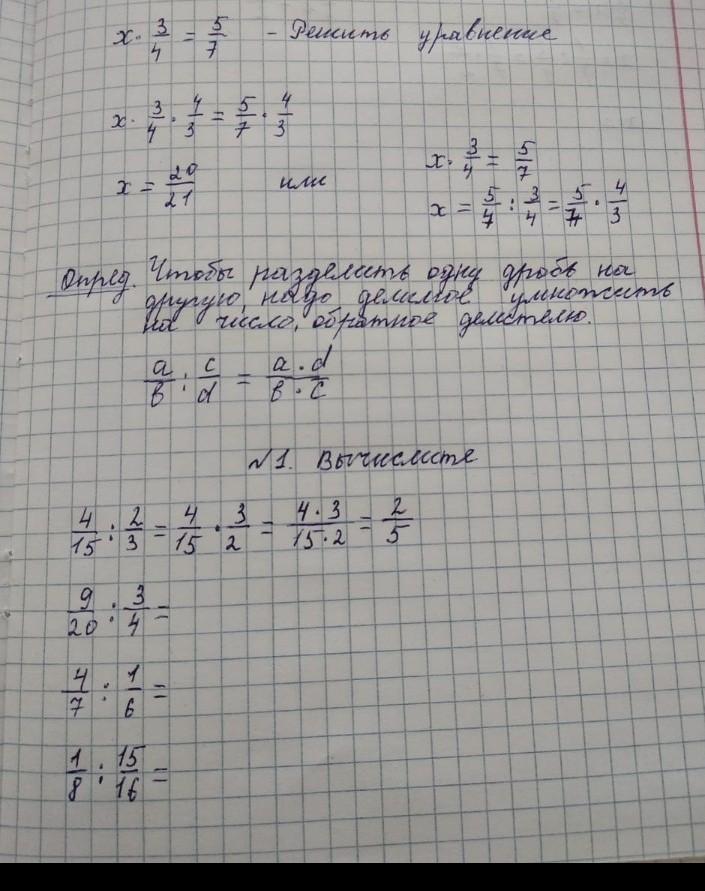 x · 3/4 = 5/7 - Решить уравнение
x · 3/4 · 4/3 = 5/7 · 4/3
x = 20/21 или
x · 3/4 = 5/7
x = 5/7 : 3/4 = 5/7 · 4/3
Опред. Чтобы разделить одну дробь на
другую, надо делимое умножить
на число, обратное делителю.
a/b : c/d = a · d/b · c
№1. Вычислите
4/15 : 2/3 = 4/15 · 3/2 = 4 · 3/15 · 2 = 2/5
9/20 : 3/4 =
4/7 : 1/6 =
1/8 : 15/16 =